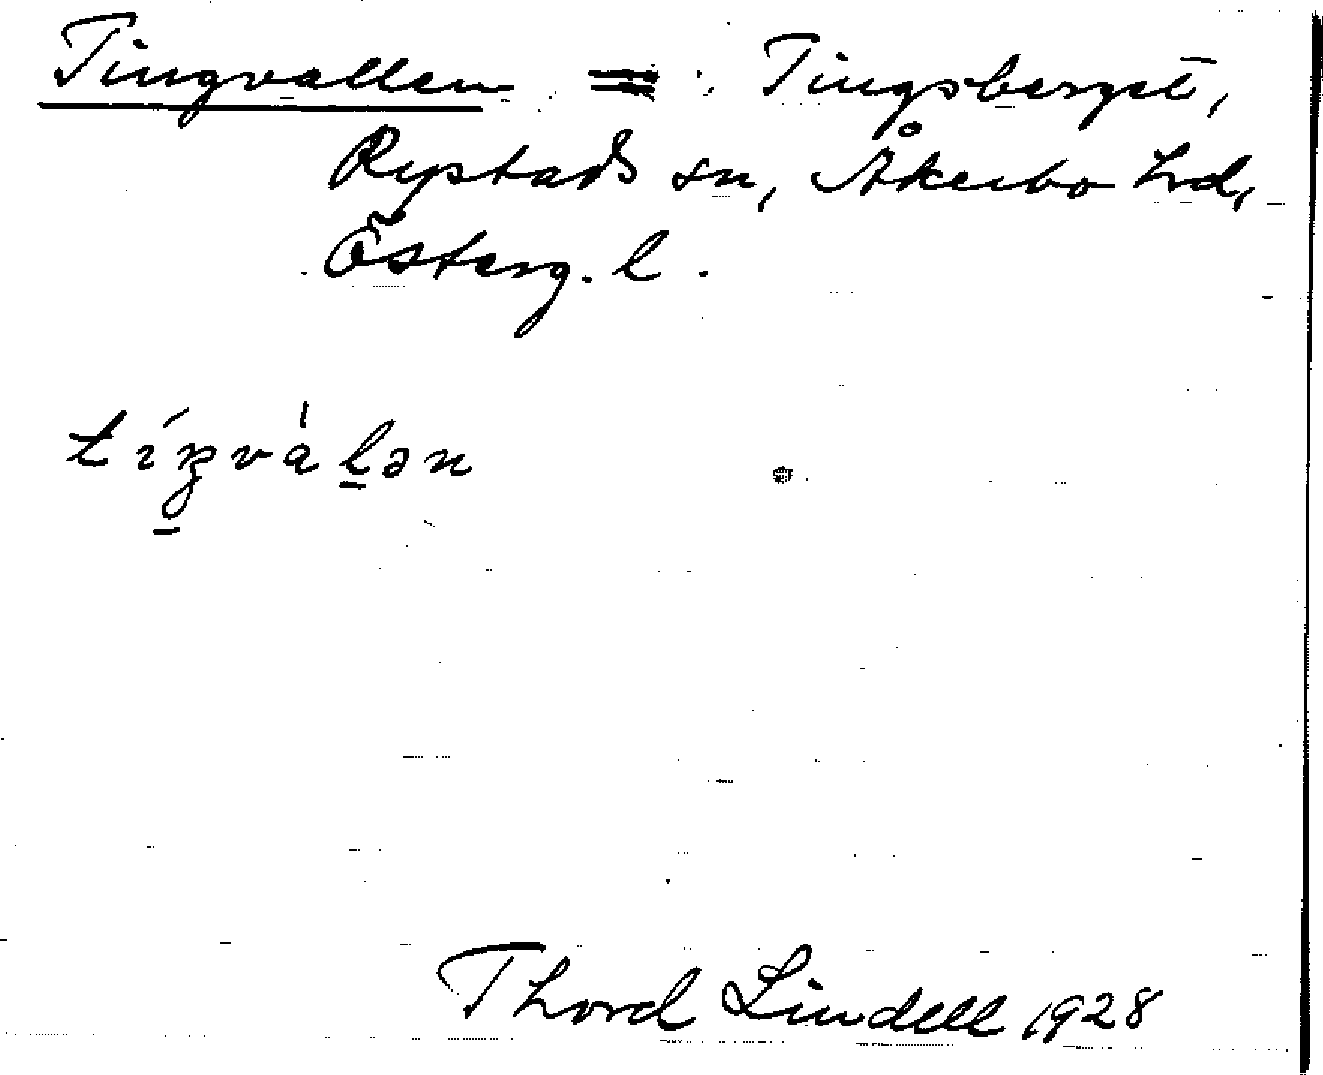 Tingvallen = Tingsberget,
Rystads sn, Åkerbo hd,
Österg. l.
tíŋvàlən
Thord Lindell 1928